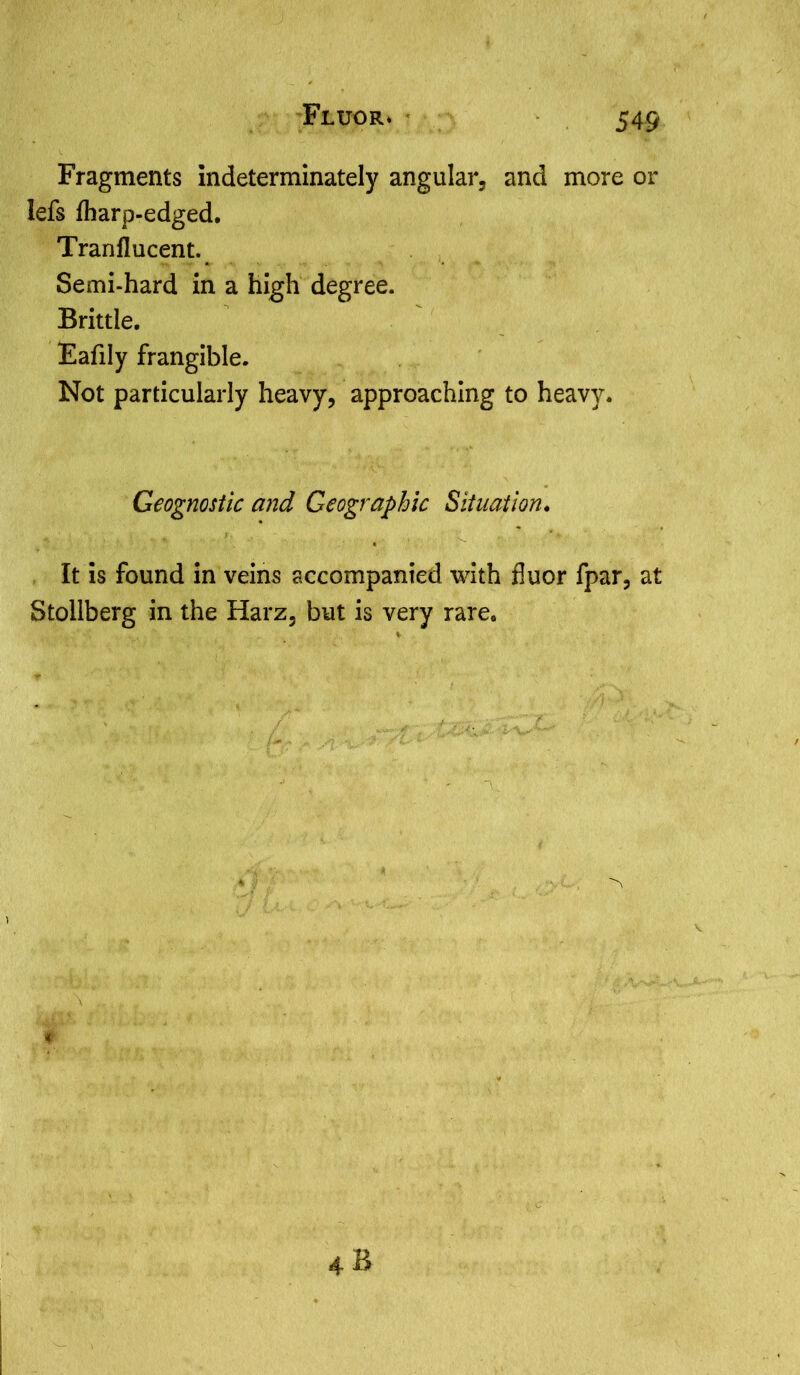 Fluor. 549
Fragments indeterminately angular, and more or
leſs ſharp-edged.
Tranſlucent.
Semi-hard in a high degree.
Brittle.
Eaſily frangible.
Not particularly heavy, approaching to heavy.
Geognostic and Geographic Situation.
It is found in veins accompanied with fluor ſpar, at
Stollberg in the Harz, but is very rare.
4 B